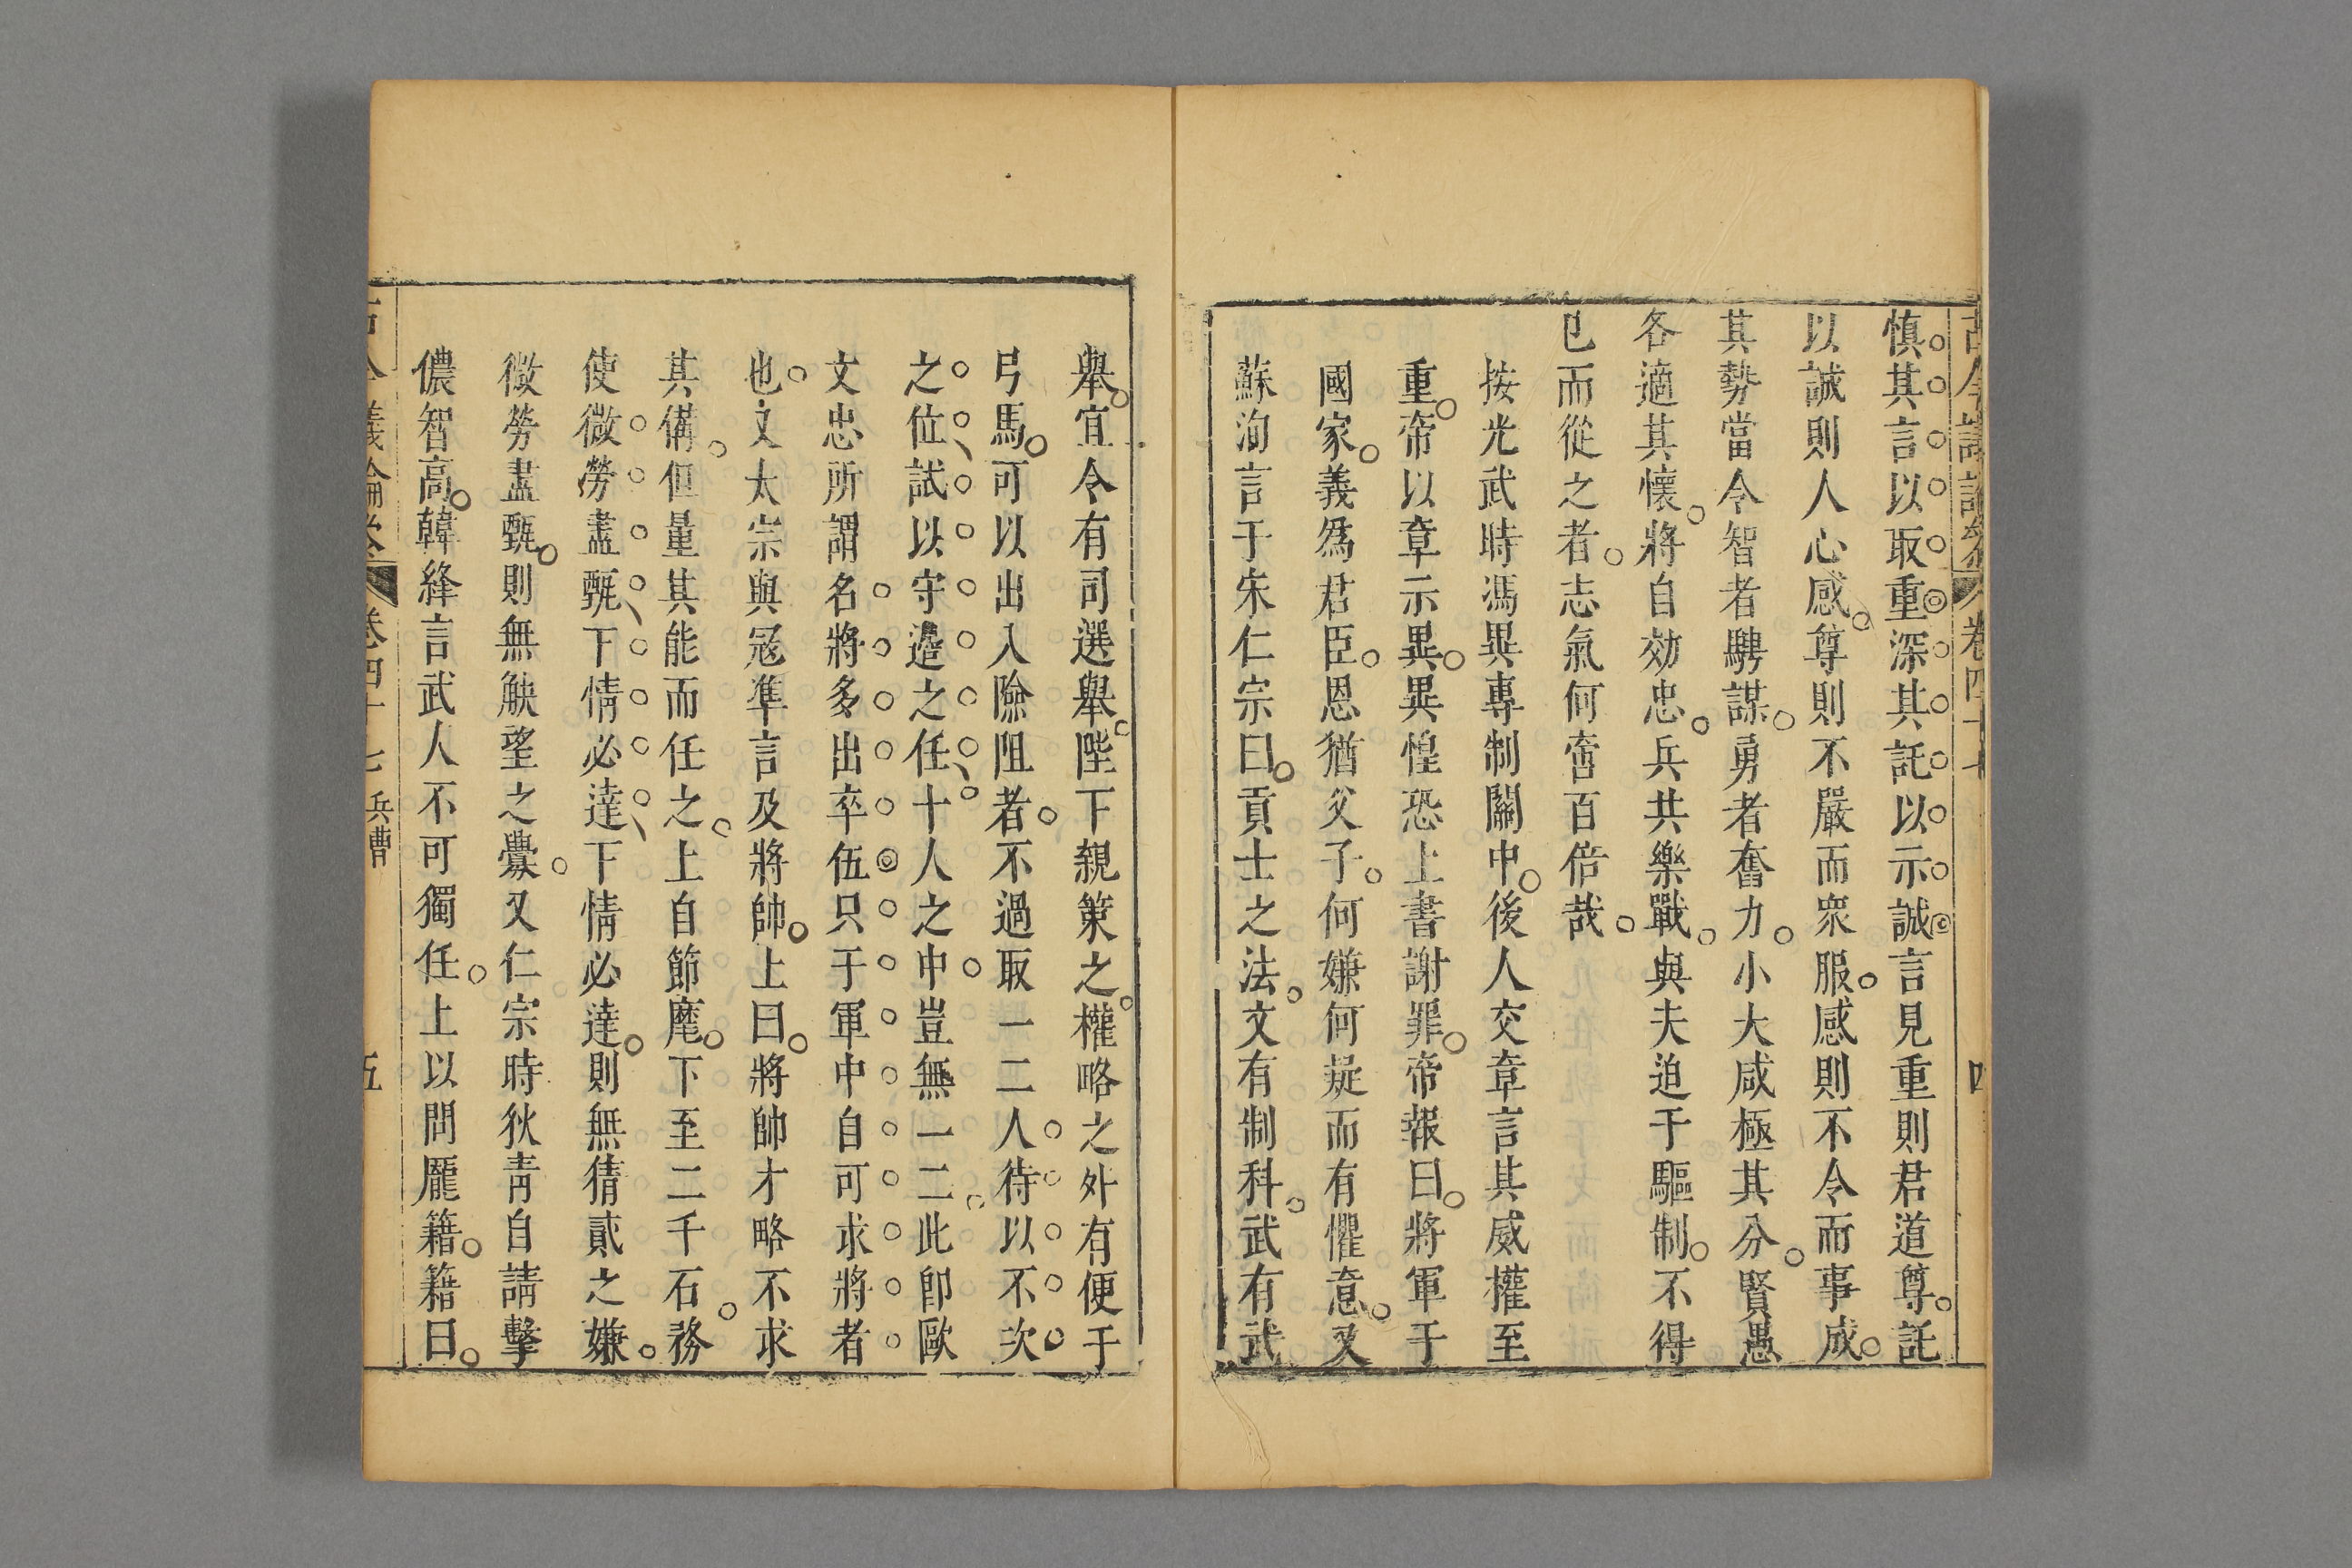 慎其言以取重深其託以示誠言見重則君道尊託
以誠則人心感尊則不嚴而衆服感則不令而事成
其勢當令智者騁謀勇者奮力小大咸極其分賢愚
各適其懷將自効忠兵共樂戰與夫迫于驅制不得
已而從之者志氣何啻百倍哉
按光武時馮異專制關中後人交章言其威權至
重帝以章示異異惶恐上書謝罪帝報曰將軍于
國家義爲君臣恩猶父子何嫌何疑而有懼意又
蘇洵言于宋仁宗曰貢士之法文有制科武有武
舉宜令有司選舉陛下親策之權略之外有便于
弓馬可以出入險阻者不過取一二人待以不次
之位試以守邊之任十人之中豈無一二此卽歐
文忠所謂名將多出卒伍只于軍中自可求將者
也文太宗與冦準言及將帥上曰將帥才略不求
其備但量其能而任之上自節麾下至二千石務
使微勞盡甄下情必達下情必達則無猜貳之嫌
微勞盡甄則無觖望之釁又仁宗時狄靑自請擊
儂智高韓絳言武人不可獨任上以問龐籍籍曰
古今議論參 卷四十七 兵曹 五